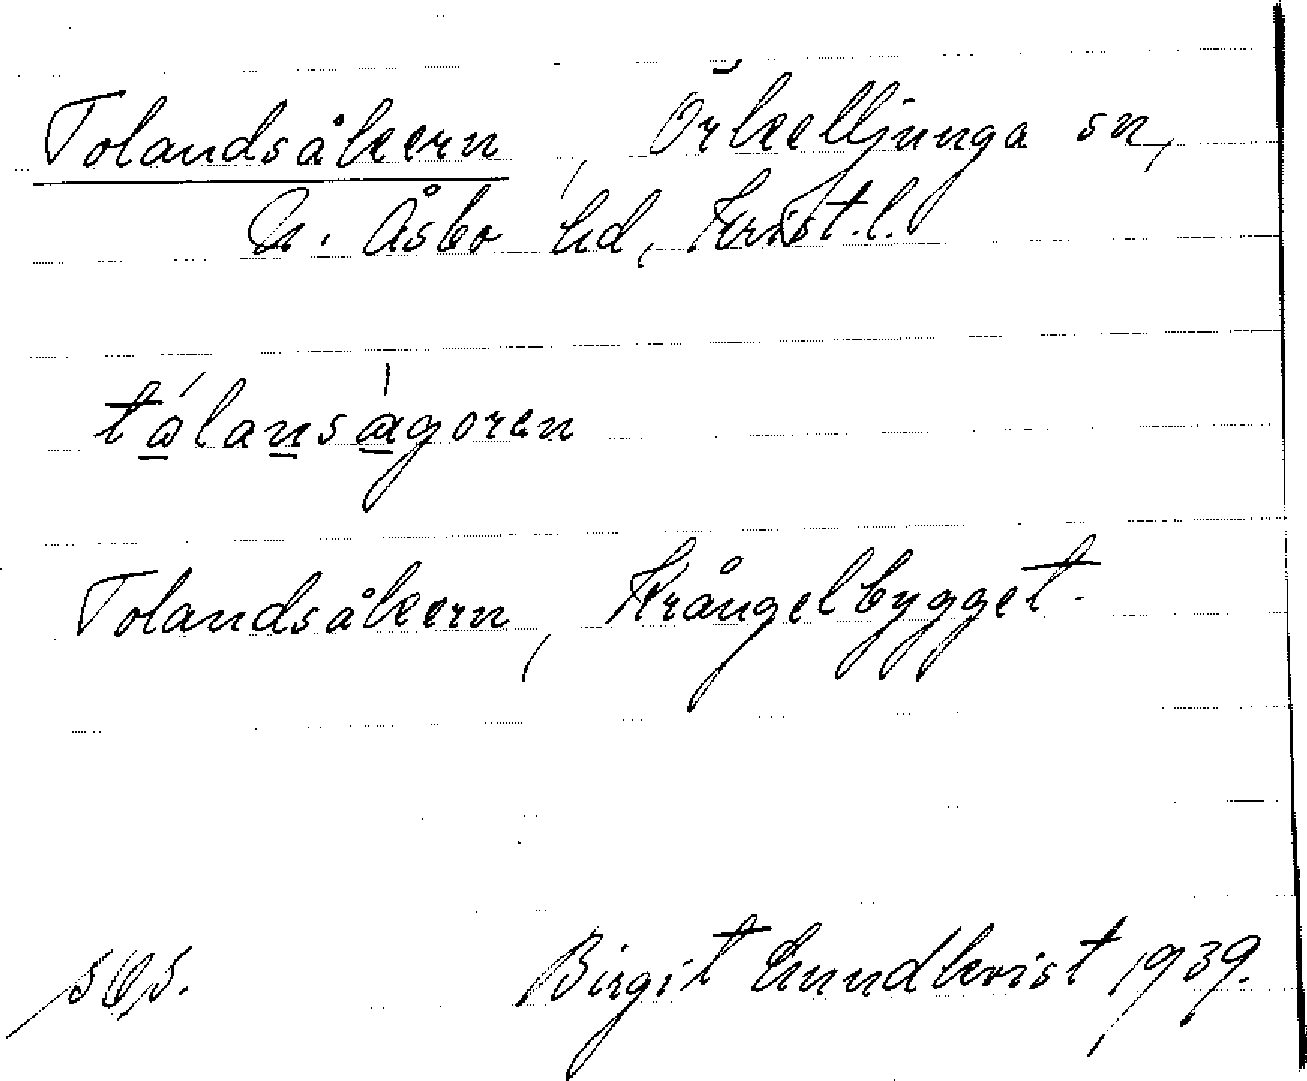 Tolandsåkern, Örkelljunga sn,
N. Åsbo hd, Krist.l.
tálansàgoren
Tolandsåkern, Krångelbygget.
Birgit Lundkvist 1939.